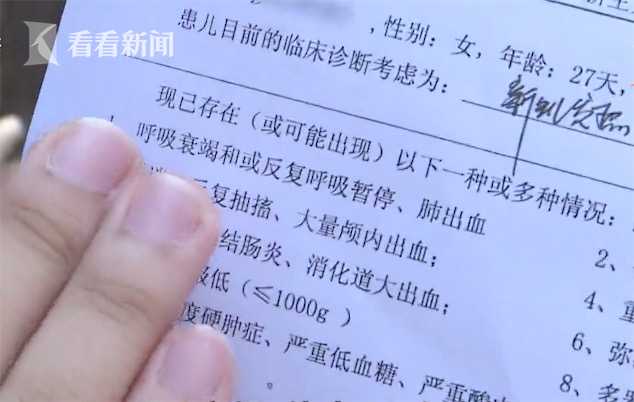 看看新闻
，性别：女，年龄：27天，
患儿目前的临床诊断考虑为：
现已存在（或可能出现）以下一种或多种情况：
呼吸衰竭和或反复呼吸暂停、肺出血
2、
反复抽搐、大量颅内出血；
结肠炎、消化道大出血；
4、重
极低（≤1000g ）
6、弥
度硬肿症、严重低血糖、严重酸
8、多
。